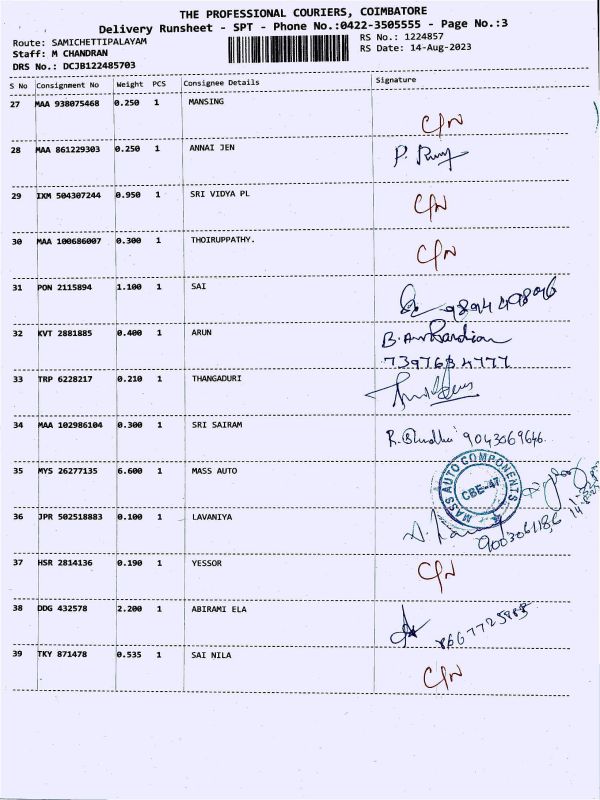 THE PROFESSIONAL COURIERS, COIMBATORE
Delivery Runsheet - SPT - Phone No.:0422-3505555 - Page No.:3
Route: SAMICHETTIPALAYAM RS No.: 1224857
Staff: M CHANDRAN RS Date: 14-Aug-2023
DRS No.: DCJB122485703
S No Consignment No Weight PCS Consignee Details Signature
27 MAA 938075468 0.250 1 MANSING
C/N
28 MAA 861229303 0.250 1 ANNAI JEN
P.
29 IXM 504307244 0.950 1 SRI VIDYA PL
C/N
30 MAA 100686007 0.300 1 THOIRUPPATHY.
C/N
31 PON 2115894 1.100 1 SAI
32 KVT 2881885 0.400 1 ARUN
33 TRP 6228217 0.210 1 THANGADURI
34 MAA 102986104 0.300 1 SRI SAIRAM
9043069646.
35 MYS 26277135 6.600 1 MASS AUTO
MASS AUTO COMPONENTS
CBE-47
36 JPR 502518883 0.100 1 LAVANIYA
9003061186
37 HSR 2814136 0.190 1 YESSOR
C/N
38 DDG 432578 2.200 1 ABIRAMI ELA
39 TKY 871478 0.535 1 SAI NILA
C/N